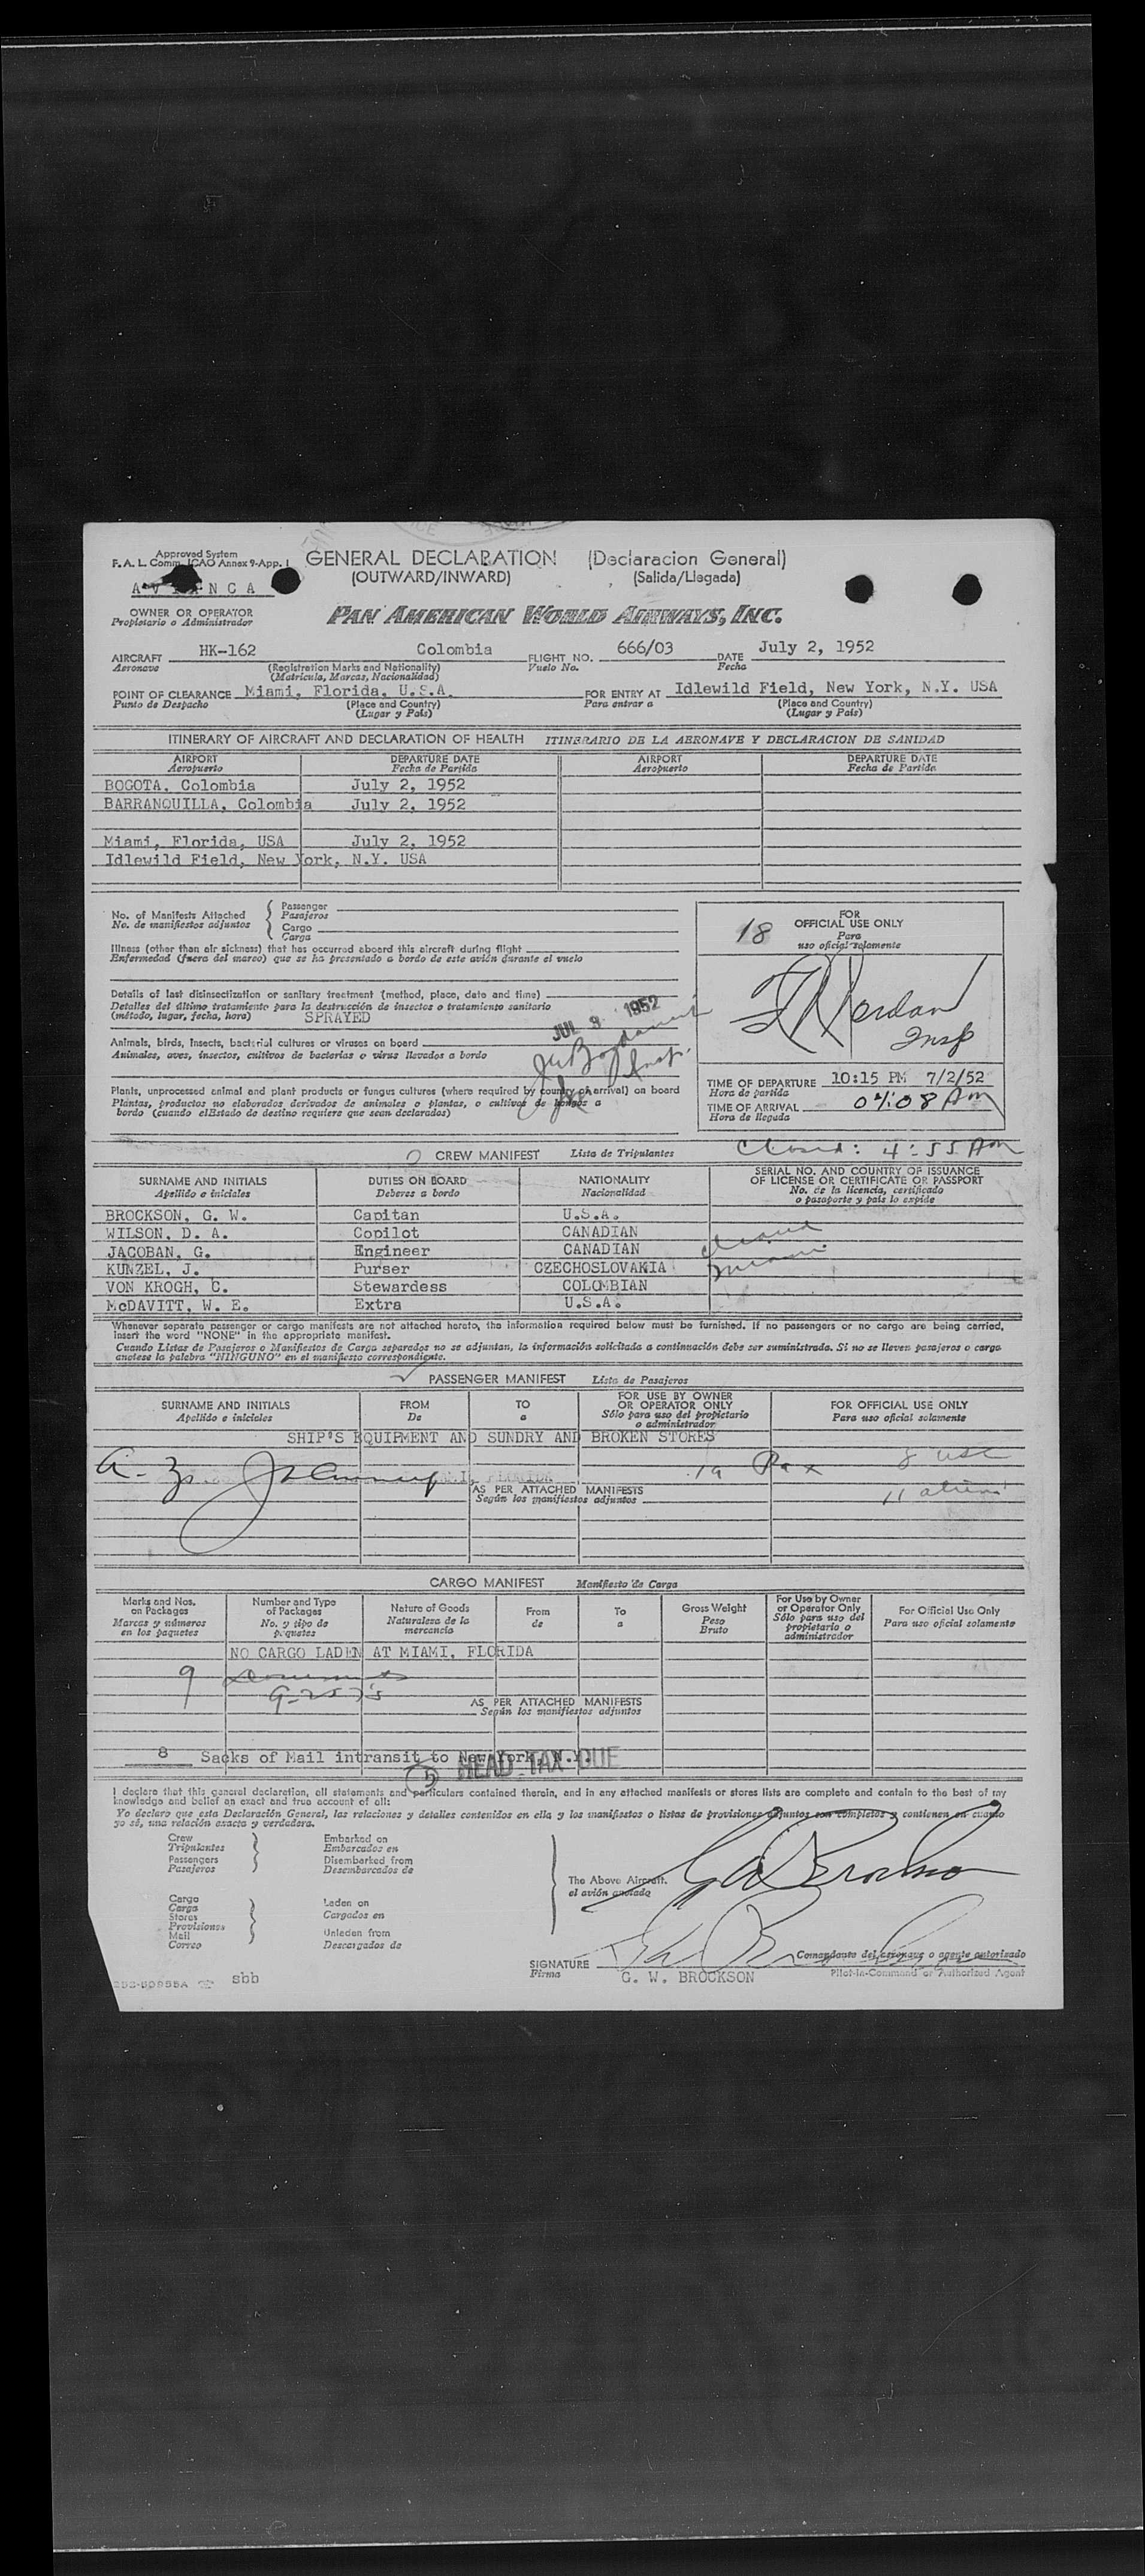 Approved System
F. A. L. Comm. ICAO Annex 9-App. I
GENERAL DECLARATION (Declaracion General)
(OUTWARD/INWARD) (Salida/Llegada)
AVIANCA
OWNER OR OPERATOR
Propietario o Administrador
PAN AMERICAN WORLD AIRWAYS, INC.
AIRCRAFT HK-162 Colombia FLIGHT NO. 666/03 DATE July 2, 1952
Aeronave (Registration Marks and Nationality) Vuelo No. Fecha
(Matricula, Marcas, Nacionalidad)
POINT OF CLEARANCE Miami, Florida, U.S.A. FOR ENTRY AT Idlewild Field, New York, N.Y. USA
Punto de Despacho (Place and Country) Para entrar a (Place and Country)
(Lugar y País) (Lugar y País)
ITINERARY OF AIRCRAFT AND DECLARATION OF HEALTH ITINERARIO DE LA AERONAVE Y DECLARACION DE SANIDAD
AIRPORT DEPARTURE DATE AIRPORT DEPARTURE DATE
Aeropuerto Fecha de Partida Aeropuerto Fecha de Partida
BOGOTA, Colombia July 2, 1952
BARRANQUILLA, Colombia July 2, 1952
Miami, Florida, USA July 2, 1952
Idlewild Field, New York, N.Y. USA
No. of Manifests Attached
No. de manifiestos adjuntos
Passenger
Pasajeros
Cargo
Carga
FOR
OFFICIAL USE ONLY
Para
uso oficial solamente
18
Insp
Illness (other than air sickness) that has occurred aboard this aircraft during flight
Enfermedad (fuera del mareo) que se ha presentado a bordo de este avión durante el vuelo
Details of last disinsectization or sanitary treatment (method, place, date and time)
Detalles del último tratamiento para la destrucción de insectos o tratamiento sanitario
(método, lugar, fecha, hora) SPRAYED
JUL 3 1952
Animals, birds, insects, bacterial cultures or viruses on board
Animales, aves, insectos, cultivos de bacterias o virus llevados a bordo
Plants, unprocessed animal and plant products or fungus cultures (where required by country of arrival) on board
Plantas, productos no elaborados derivados de animales o plantas, o cultivos de hongos a
bordo (cuando elEstado de destino requiere que sean declarados)
TIME OF DEPARTURE 10:15 PM 7/2/52
Hora de partida
TIME OF ARRIVAL
Hora de llegada
4:55 Am
CREW MANIFEST Lista de Tripulantes
SURNAME AND INITIALS DUTIES ON BOARD NATIONALITY SERIAL NO. AND COUNTRY OF ISSUANCE
OF LICENSE OR CERTIFICATE OR PASSPORT
Apellido e iniciales Deberes a bordo Nacionalidad No. de la licencia, certificado
o pasaporte y país lo expide
BROCKSON, G. W. Capitan U.S.A.
WILSON, D. A. Copilot CANADIAN
JACOBAN, G. Engineer CANADIAN
KUNZEL, J. Purser CZECHOSLOVAKIA
VON KROGH, C. Stewardess COLOMBIAN
McDAVITT, W. E. Extra U.S.A.
Whenever separate passenger or cargo manifests are not attached hereto, the information required below must be furnished. If no passengers or no cargo are being carried,
insert the word "NONE" in the appropriate manifest.
Cuando Listas de Pasajeros o Manifiestos de Carga separados no se adjuntan, la información solicitada a continuación debe ser suministrada. Si no se lleven pasajeros o carga
anotese la palabra "NINGUNO" en el manifiesto correspondiente.
PASSENGER MANIFEST Lista de Pasajeros
SURNAME AND INITIALS FROM TO FOR USE BY OWNER
OR OPERATOR ONLY FOR OFFICIAL USE ONLY
Apellido e iniciales De a Sólo para uso del propietario
o administrador Para uso oficial solamente
SHIP'S EQUIPMENT AND SUNDRY AND BROKEN STORES
19 Pax 8 USC
11 aliens
AS PER ATTACHED MANIFESTS
Según los manifiestos adjuntos
CARGO MANIFEST Manifiesto de Carga
Marks and Nos.
on Packages
Marcas y números
en los paquetes
Number and Type
of Packages
No. y tipo de
paquetes
Nature of Goods
Naturaleza de la
mercancía
From
de
To
a
Gross Weight
Peso
Bruto
For Use by Owner
or Operator Only
Sólo para uso del
propietario o
administrador
For Official Use Only
Para uso oficial solamente
NO CARGO LADEN AT MIAMI, FLORIDA
9
AS PER ATTACHED MANIFESTS
Según los manifiestos adjuntos
8 Sacks of Mail intransit to New York, N.Y.
HEAD TAX DUE
I declare that this general declaration, all statements and particulars contained therein, and in any attached manifests or stores lists are complete and contain to the best of my
knowledge and belief an exact and true account of all:
Yo declaro que esta Declaración General, las relaciones y detalles contenidos en ella y los manifiestos o listas de provisiones adjuntos son completos y contienen en cuanto
yo sé, una relación exacta y verdadera.
Crew
Tripulantes
Passengers
Pasajeros
Embarked on
Embarcados en
Disembarked from
Desembarcados de
Cargo
Carga
Stores
Provisiones
Mail
Correo
Laden on
Cargados en
Unladen from
Descargados de
The Above Aircraft.
el avión anotado
SIGNATURE
Firma
Comandante del aeronave o agente autorizado
G. W. BROCKSON Pilot-In-Command or Authorized Agent
sbb